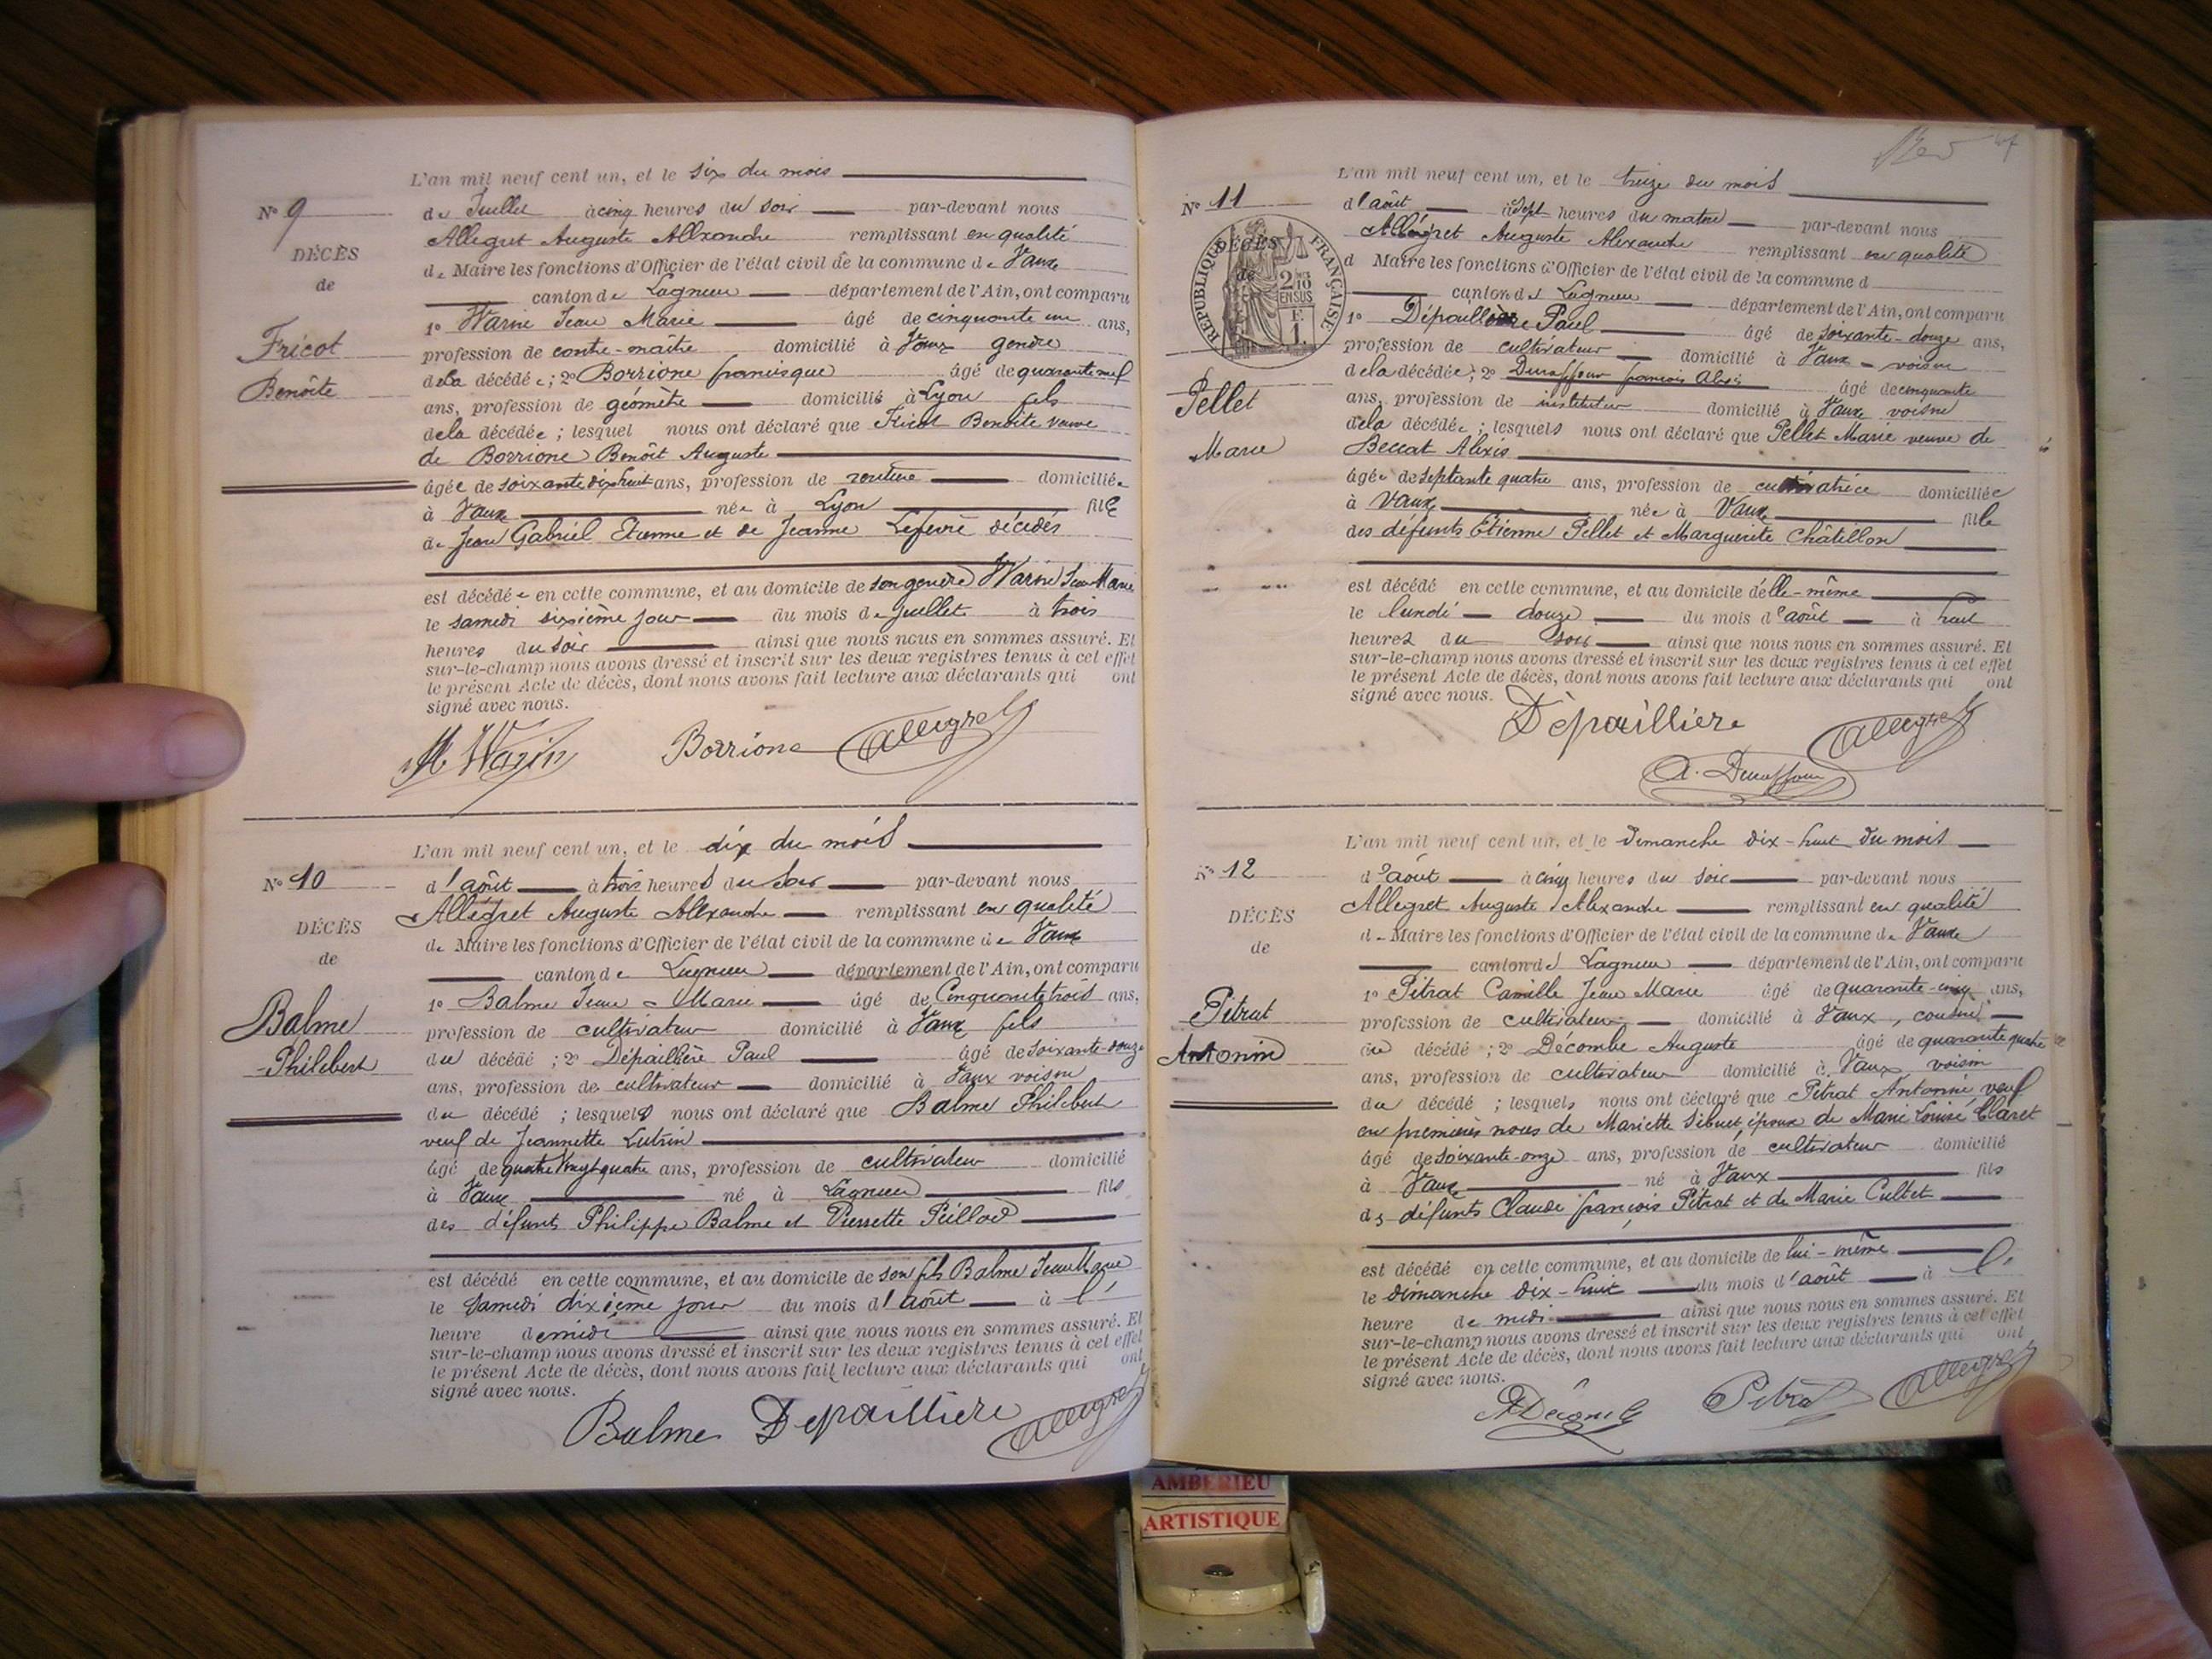 L'an mil neuf cent un, et le six du mois
No 9
de Juillet à cinq heures du soir par-devant nous
Allegret Auguste Allexandre remplissant en qualité
DÉCÈS
de Maire les fonctions d'Officier de l'état civil de la commune de Vaux
de
canton de Lagnieu département de l'Ain, ont comparu
1o Warin Jean Marie âgé de cinquante un ans,
Fricot
profession de contre-maître domicilié à Vaux gendre
de la décédée; 2o Borrione françisque âgé de quarante neuf
Benoîte
ans, profession de géomètre domicilié à Lyon fils
de la décédée; lesquel nous ont déclaré que Fricot Benoîte veuve
de Borrione Benoît Auguste
âgée de soixante dix huit ans, profession de rentière domiciliée
à Vaux née à Lyon fille
de Jean Gabriel Etienne et de Jeanne Lefevre décédés
est décédée en cette commune, et au domicile de son gendre Warin Jean Marie
le samedi sixième jour du mois de Juillet à trois
heures du soir ainsi que nous nous en sommes assuré. Et
sur-le-champ nous avons dressé et inscrit sur les deux registres tenus à cet effet
le présent Acte de décès, dont nous avons fait lecture aux déclarants qui ont
signé avec nous.
M Warin Borrione Allegret
L'an mil neuf cent un, et le dix du mois
No 10
d'août à trois heures du soir par-devant nous
Allegret Auguste Alexandre remplissant en qualité
DÉCÈS
de Maire les fonctions d'Officier de l'état civil de la commune de Vaux
de
canton de Lagnieu département de l'Ain, ont comparu
1o Balme Jean-Marie âgé de Cinquante trois ans,
Balme
profession de cultivateur domicilié à Vaux fils
du décédé; 2o Dépaillière Paul âgé de soixante-douze
Philibert
ans, profession de cultivateur domicilié à Vaux voisin
du décédé; lesquels nous ont déclaré que Balme Philibert
veuf de Jeannette Lutrin
âgé de quatre vingt quatre ans, profession de cultivateur domicilié
à Vaux né à Lagnieu fils
des défunts Philippe Balme et Pierrette Peillod
est décédé en cette commune, et au domicile de son fils Balme Jean Marie
le Samedi dixième jour du mois d'août à l'
heure de midi ainsi que nous nous en sommes assuré. Et
sur-le-champ nous avons dressé et inscrit sur les deux registres tenus à cet effet
le présent Acte de décès, dont nous avons fait lecture aux déclarants qui ont
signé avec nous.
Balme Depaillière Allegret
L'an mil neuf cent un, et le treize du mois
No 11
d'août à sept heures du matin par-devant nous
Allégret Auguste Alexandre remplissant en qualité
RÉPUBLIQUE FRANÇAISE
DÉCÈS
de
2/10 EN SUS
F. 1.
d Maire les fonctions d'Officier de l'état civil de la commune d
canton de Lagnieu département de l'Ain, ont comparu
1o Dépaillière Paul âgé de soixante-douze ans,
profession de cultivateur domicilié à Vaux - voisin
de la décédée; 2o Dunaffour françois Alexis âgé de cinquante
Pellet
ans, profession de instituteur domicilié à Vaux voisin
de la décédée; lesquels nous ont déclaré que Pellet Marie veuve de
Marie
Beccat Alexis
âgée de septante quatre ans, profession de cultivatrice domiciliée
à Vaux née à Vaux fille
des défunts Étienne Pellet et Marguerite Châtillon
est décédé en cette commune, et au domicile d'elle-même
le lundi douze du mois d'août à huit
heures du soir ainsi que nous nous en sommes assuré. Et
sur-le-champ nous avons dressé et inscrit sur les deux registres tenus à cet effet
le présent Acte de décès, dont nous avons fait lecture aux déclarants qui ont
signé avec nous.
Dépaillière Allegret
L'an mil neuf cent un, et le Dimanche dix-huit du mois
No 12
d'août à cinq heures du soir par-devant nous
Allegret Auguste Alexandre remplissant en qualité
DÉCÈS
de Maire les fonctions d'Officier de l'état civil de la commune de Vaux
de
canton de Lagnieu département de l'Ain, ont comparu
1o Pitrat Camille Jean Marie âgé de quarante-cinq ans,
Pitrat
profession de cultivateur domicilié à Vaux, cousin
du décédé; 2o Décombe Auguste âgé de quarante quatre
Antonin
ans, profession de cultivateur domicilié à Vaux voisin
du décédé; lesquels nous ont déclaré que Pitrat Antonin veuf
en premières noces de Mariette Sibuet, époux de Marie Louise Claret
âgé de soixante-onze ans, profession de cultivateur domicilié
à Vaux né à Vaux fils
des défunts Claude françois Pitrat et de Marie Cultet
est décédé en cette commune, et au domicile de lui-même
le dimanche dix-huit du mois d'août à l'
heure de midi ainsi que nous nous en sommes assuré. Et
sur-le-champ nous avons dressé et inscrit sur les deux registres tenus à cet effet
le présent Acte de décès, dont nous avons fait lecture aux déclarants qui ont
signé avec nous.
Pitrat Allegret
AMBERIEU
ARTISTIQUE